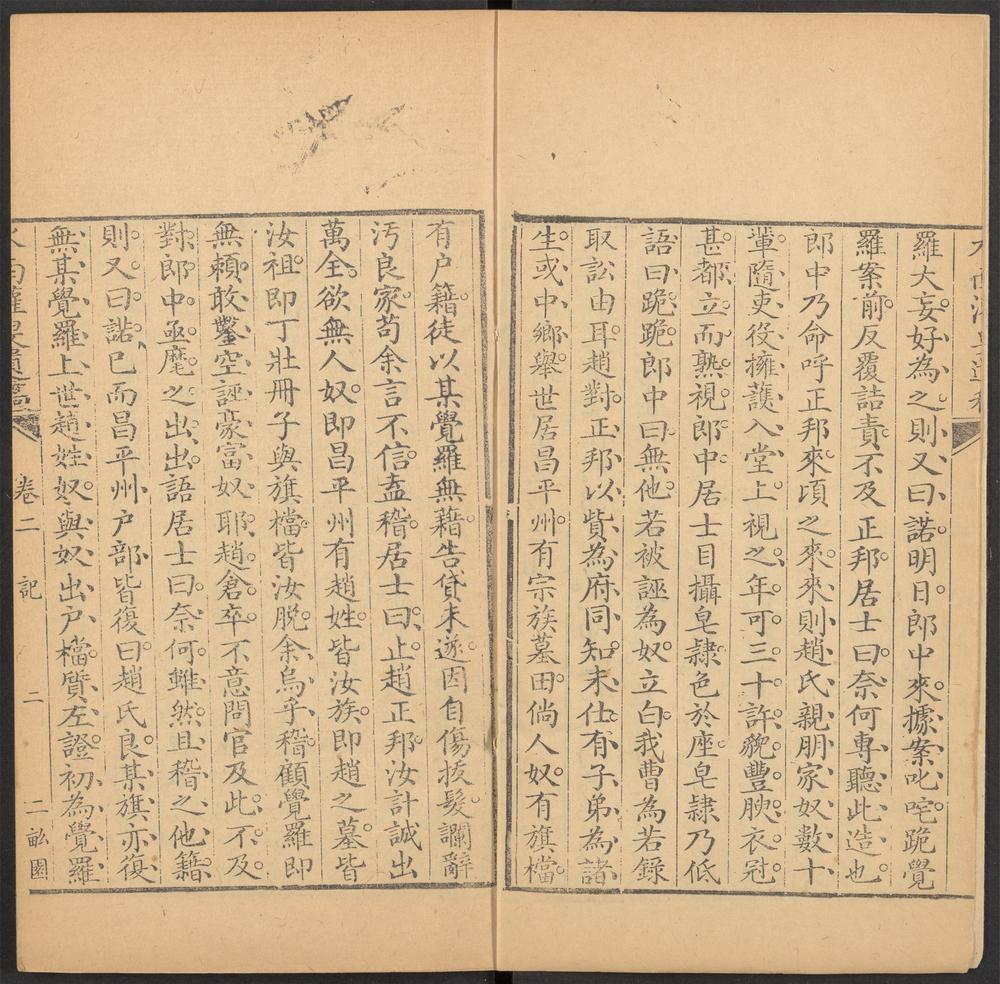 羅大妄好為之則又曰諾明日郎中來據案叱咤跪覺
羅案前反覆詰責不及正邦居士曰奈何專聽此造也
郎中乃命呼正邦來頃之來來則趙氏親朋家奴數十
輩隨吏役擁護入堂上視之年可三十許貌豐腴衣冠
甚都立而熟視郎中居士目攝皂隸色於座皂隸乃低
語曰跪跪郎中曰無他若被誣為奴立白我曹為若錄
取訟由耳趙對正邦以貲為府同知未仕有子弟為諸
生或中鄉舉世居昌平州有宗族墓田倘人奴有旗檔
有户籍徒以某覺羅無籍告貸未遂因自傷拔髮讕辭
汚良家苟余言不信盍稽居士曰止趙正邦汝計誠出
萬全欲無人奴即昌平州有趙姓皆汝族即趙之墓皆
汝祖即丁壯冊子與旗檔皆汝脫余烏乎稽顧覺羅即
無賴敢鑿空誣豪富奴耶趙倉卒不意問官及此不及
對郎中亟麾之出出語居士曰奈何雖然且稽之他籍
則又曰諾已而昌平州户部皆復曰趙氏良某旗亦復
無某覺羅上世趙姓奴與奴出户檔質左證初為覺羅
卷二 記 二 二畝園